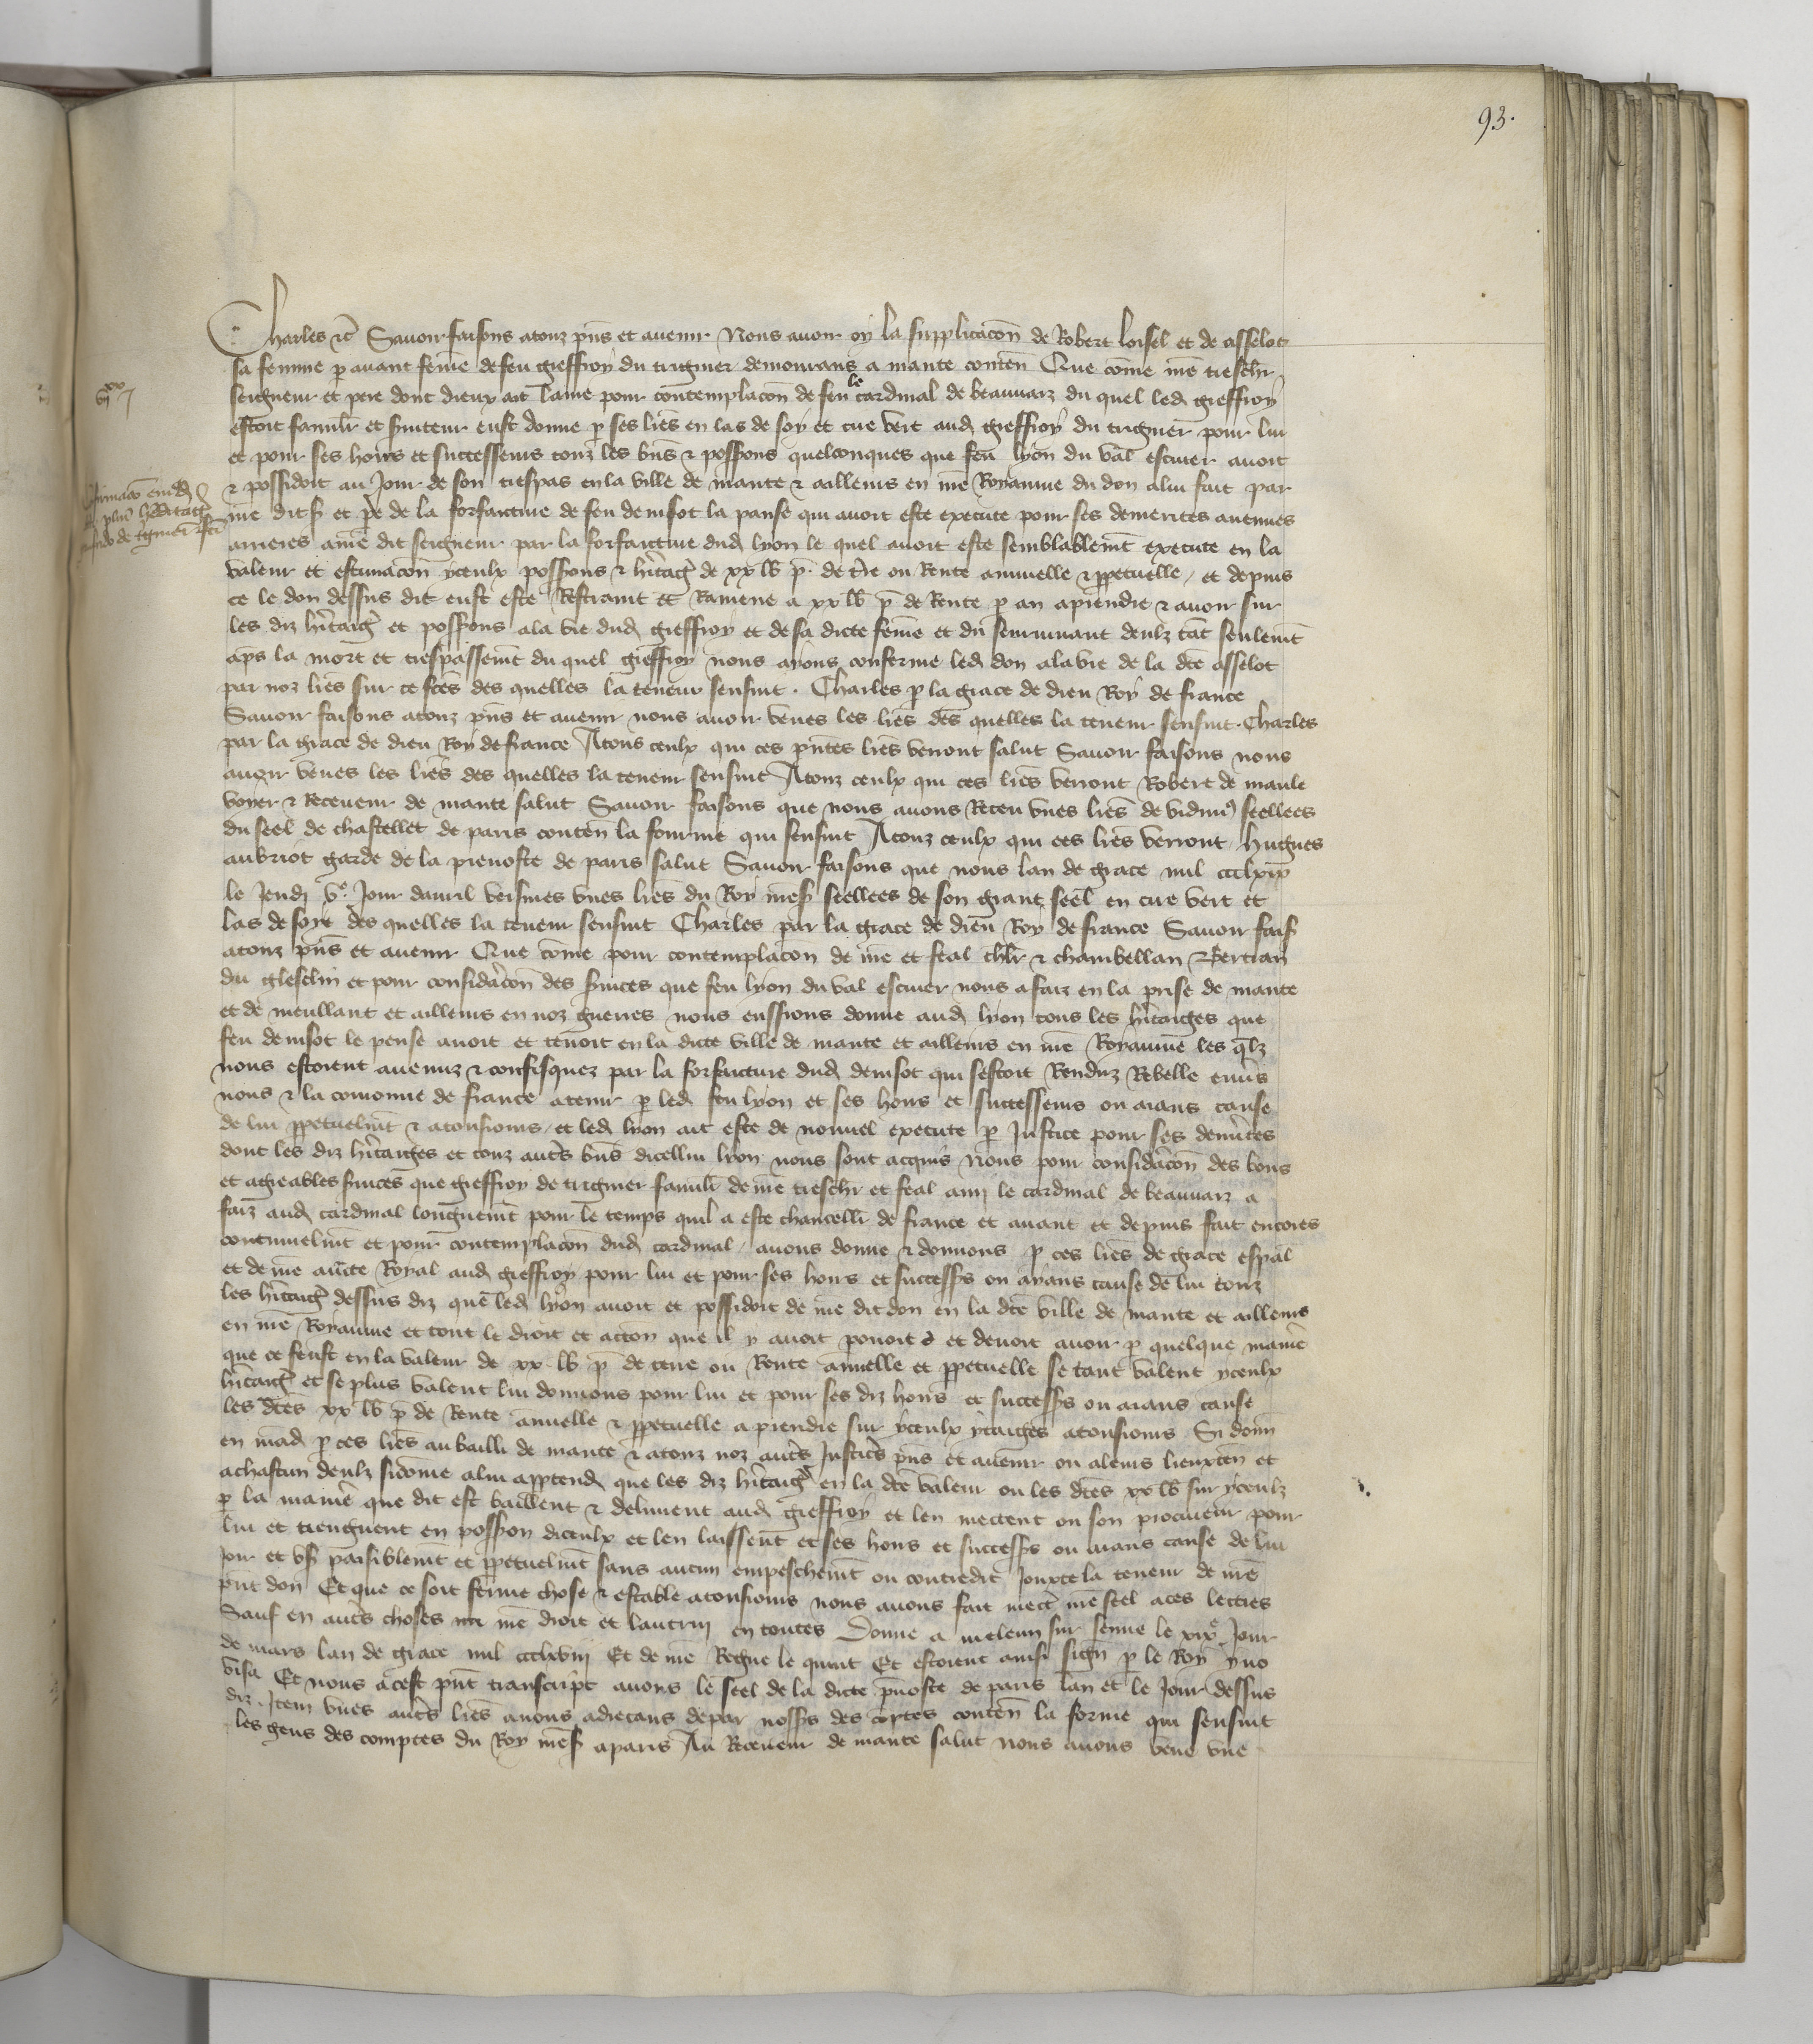 93.
Charles etc Savoir faisons atouz pns et avenir Nous avoir oy la supplicacon de Robert loisel et de asselot
sa femme p avant feme de feu gieffroy du trigmer demourans a mante conten Que come nre treschr
seigneur et pere dont dieux ait lame pour contemplacon de feu le cardinal de beauvaiz du quel led gieffroy
estoit famili et sviteur eust donne p ses lres en las de soy et cire vert aud gieffroy du trigmer pour lui
et pour ses hoirs et successeurs touz les bns & possons quelconques que feu lyon du val escuier avoit
& possidoit au Jour de son trespas en la ville de mante & ailleurs en nre Royaume du don alui fait par
nre dit s et pe de la forfaiture de feu denisot la panse qui avoit este execute pour ses demerites avenues
arrieres a nre dit seigneur par la forfaiture dud lyon le quel avoit este semblablemt execute en la
valeur et estimacon yceulx possons & hitag de xx lb p de tre ou Rente annuelle & ppetuelle / et depuis
ce le don dessus dit eust este Restraint et Ramene a xx lb p de Rente p an aprendre & avoir sur
les diz hitaig et possons ala vie dud gieffroy et de sa dicte feme et du seurvivant deulz tat seulemt
aps la mort et trespassemt du quel gieffroy nous ayons conferme led don ala vie de la dce asselot
par noz lres sur ce fces des quelles la teneur sensuit . Charles p la grace de dieu Roy de france
Savoir faisons atouz pns et avenir nous avoir veues les lres des quelles la teneur sensuit . Charles
par la grace de dieu Roy de france Atous ceulx qui ces pntes lres verront salut Savoir faisons nous
avoir veues les lres des quelles la teneur sensuit Atouz ceulx qui ces lres verront Robert de maule
voyer & Receveur de mante salut Savoir faisons que nous avons Receu unes lres de vidimus seellees
du seel de chastellet de paris conten la fourme qui sensuit Atouz ceulx qui ces lres verront / hugues
aubriot garde de la prevoste de paris salut Savoir faisons que nous lan de grace mil ccclxix
le Jeudi ve Jour davril veismes unes lres du Roy nres seellees de son grant seel en cire vert et
las de soye des quelles la teneur sensuit Charles par la grace de dieu Roy de france Savoir fais
atouz pns et avenir Que come pour contemplacon de nre et feal chlr & chambellan Bertran
du glesclin et pour consideracon des svices que feu lyon du val escuier nous a faiz en la prise de mante
et de meullant et ailleurs en noz guerres nous eussions donne aud lyon tous les hitaiges que
feu denisot le pense avoit et tenoit en la dicte ville de mante et ailleurs en nre Royaume les qlz
nous estoient avenuz & confisquez par la forfaiture dud denisot qui sestoit Renduz Rebelle envs
nous & la couronne de france atenir p led feu lyon et ses hoirs et successeurs ou aians cause
de lui ppetuelmt & atousiours / et led lyon ait este de nouvel execute p Justice pour ses demites
dont les diz hitaiges et touz auts bns dicellui lyon nous sont acquis Nous pour consideracon des bons
et agreables svices que gieffroy de trigmer famili de nre treschr et feal amj le cardinal de beauvaiz a
faiz aud cardinal longuemt pour le temps quil a este chancelli de france et avant et depuis fait encores
continuelmt et pour contemplacon dud cardinal / avons donne & donnons p ces lres de grace espal
et de nre aucte Royal aud gieffroy pour lui et pour ses hoirs et successs ou ayans cause de lui touz
les hitaig dessus diz que led lyon avoit et possidoit de nre dit don en la dce ville de mante et ailleurs
en nre Royaume et tout le droit et accon que il y avoit povoit et devoit avoir p quelque manie
que ce feust en la valeur de xx lb p de terre ou Rente annuelle et ppetuelle se tant valent yceulx
hitaig et se plus valent lui donnons pour lui et pour ses diz hoirs et successs ou aians cause
les dces xx lb p de Rente annuelle & ppetuelle a prendre sur yceulx ytaiges atousiours Si donn
en mad p ces lres au bailli de mante & atouz noz auts Justics pns et avenir ou aleurs lieuxten et
achascun deulz sicome alui apptend que les diz hitaig en la dce valeur ou les dces xx lb sur yceulz
p la manie que dit est baillent & delivrent aud gieffroy et len mectent ou son procureur pour
lui et tiengnent en posson diceulx et len laissent et ses hoirs et successs ou aians cause de lui
Joir et us paisiblemt et ppetuelmt sans aucun empeschemt ou contredit Jouxte la teneur de nre
pnt don Et que ce soit ferme chose & estable atousiours nous avons fait mect nre seel aces lectres
Sauf en auts choses nre droit et lautruj en toutes Donne a meleun sur senne le xixe Jour
de mars lan de grace mil ccclxviij Et de nre Regne le quint Et estoient ainsi sign p le Roy yvo
visa Et nous a cest pnt transcript avons le seel de la dicte pvoste de paris lan et le Jour dessus
diz . Item unes auts lres avons adiecans depar nosss des cptes conten la forme qui sensuit
les gens des comptes du Roy nres aparis Au Receveur de mante salut nous avons veue une